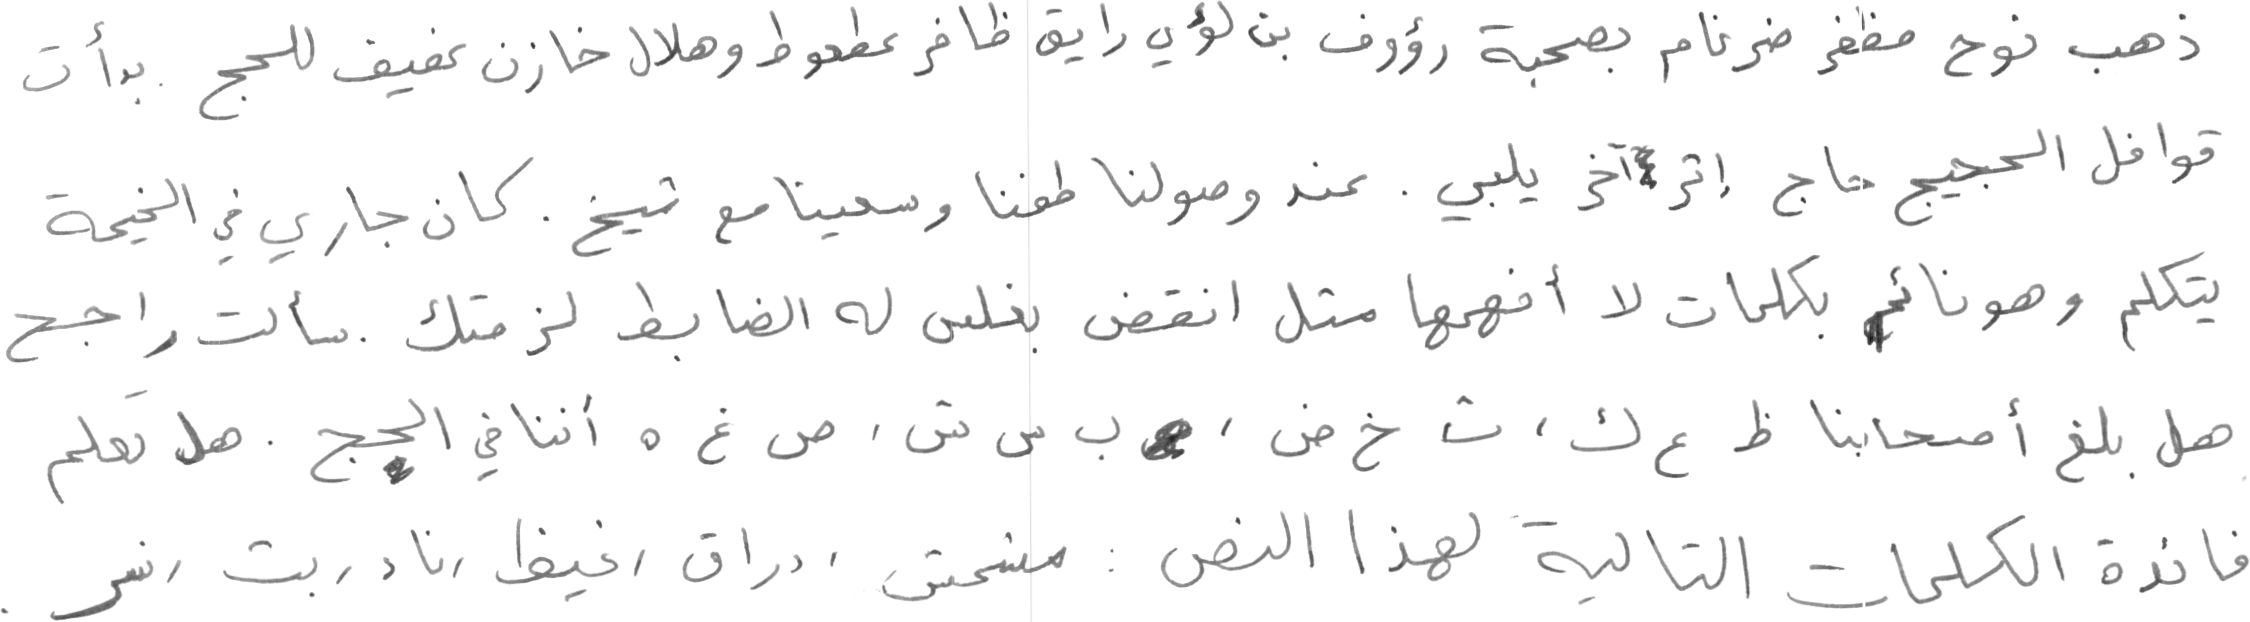 ذهب نوح مظفر ضرغام بصحبة رؤوف بن لؤي رايق ظافر عطعوط وهلال خازن عفيف للحج. بدأت
قوافل الحجيج حاج إثر آخر يلبي. عند وصولنا طفنا وسعينا مع شيخ. كان جاري في الخيمة
يتكلم وهو نائم بكلمات لا أفهمها مثل انقض بغلس له الضابط لزمتك. سألت راجح
هل بلغ أصحابنا ظ ع ك، ث خ ض، ب س ش، ص غ ه أننا في الحج. هل تعلم
فائدة الكلمات التالية لهذا النص: مشمش، دراق، غيظ، ناد، بت، نسر.